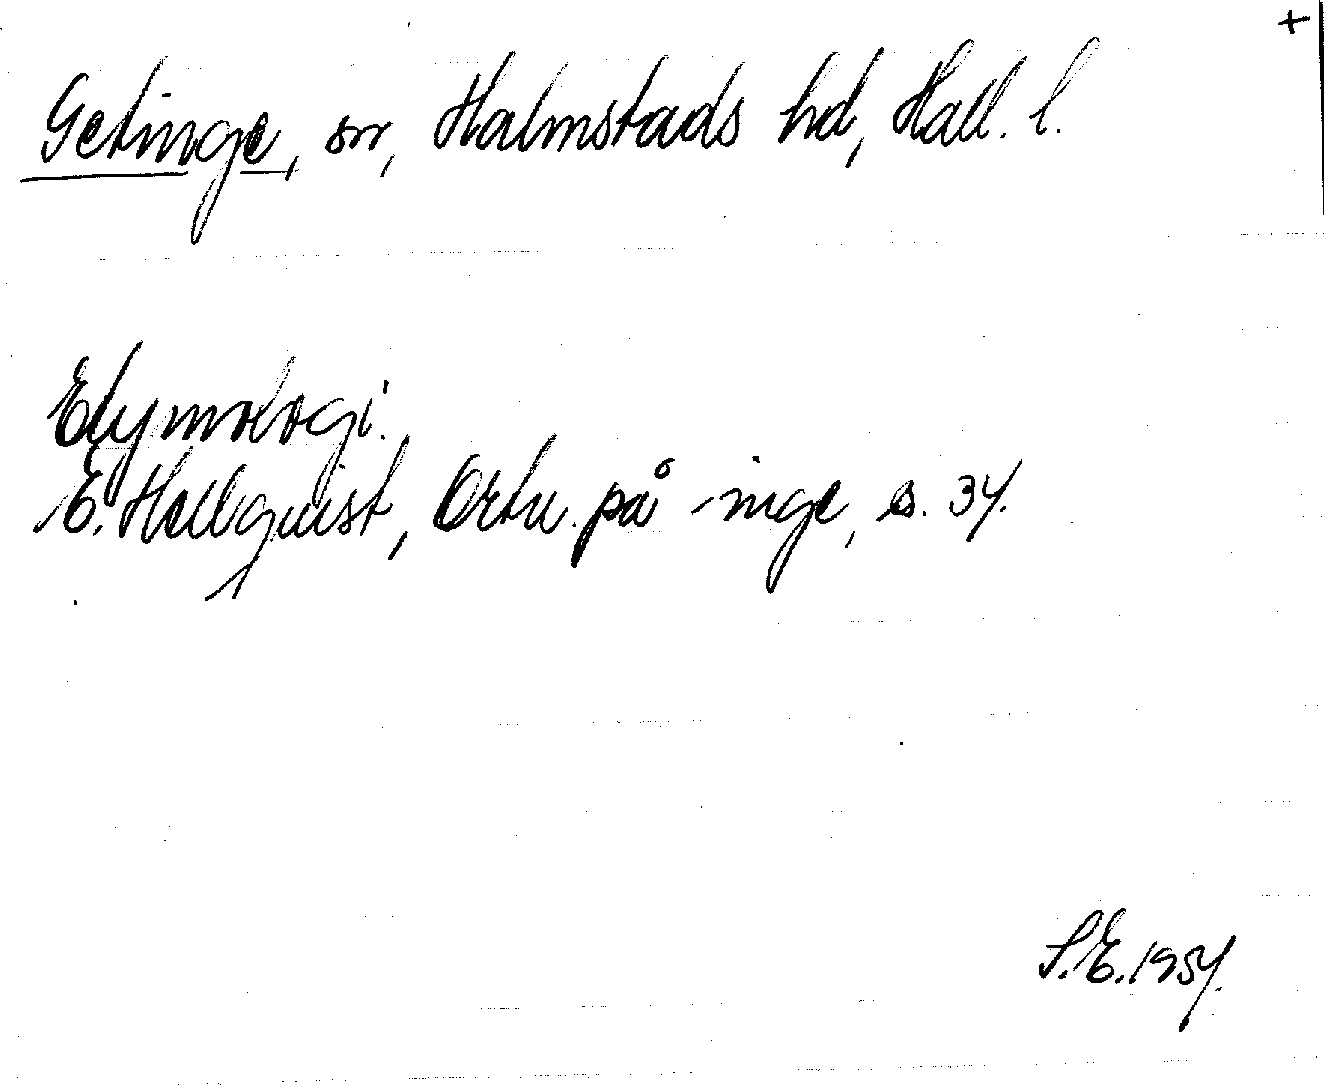 +
Getinge, sn, Halmstads hd, Hall. l.
Etymologi.
E. Hellquist, Ortn. på -inge, s. 34.
S.E. 1954.